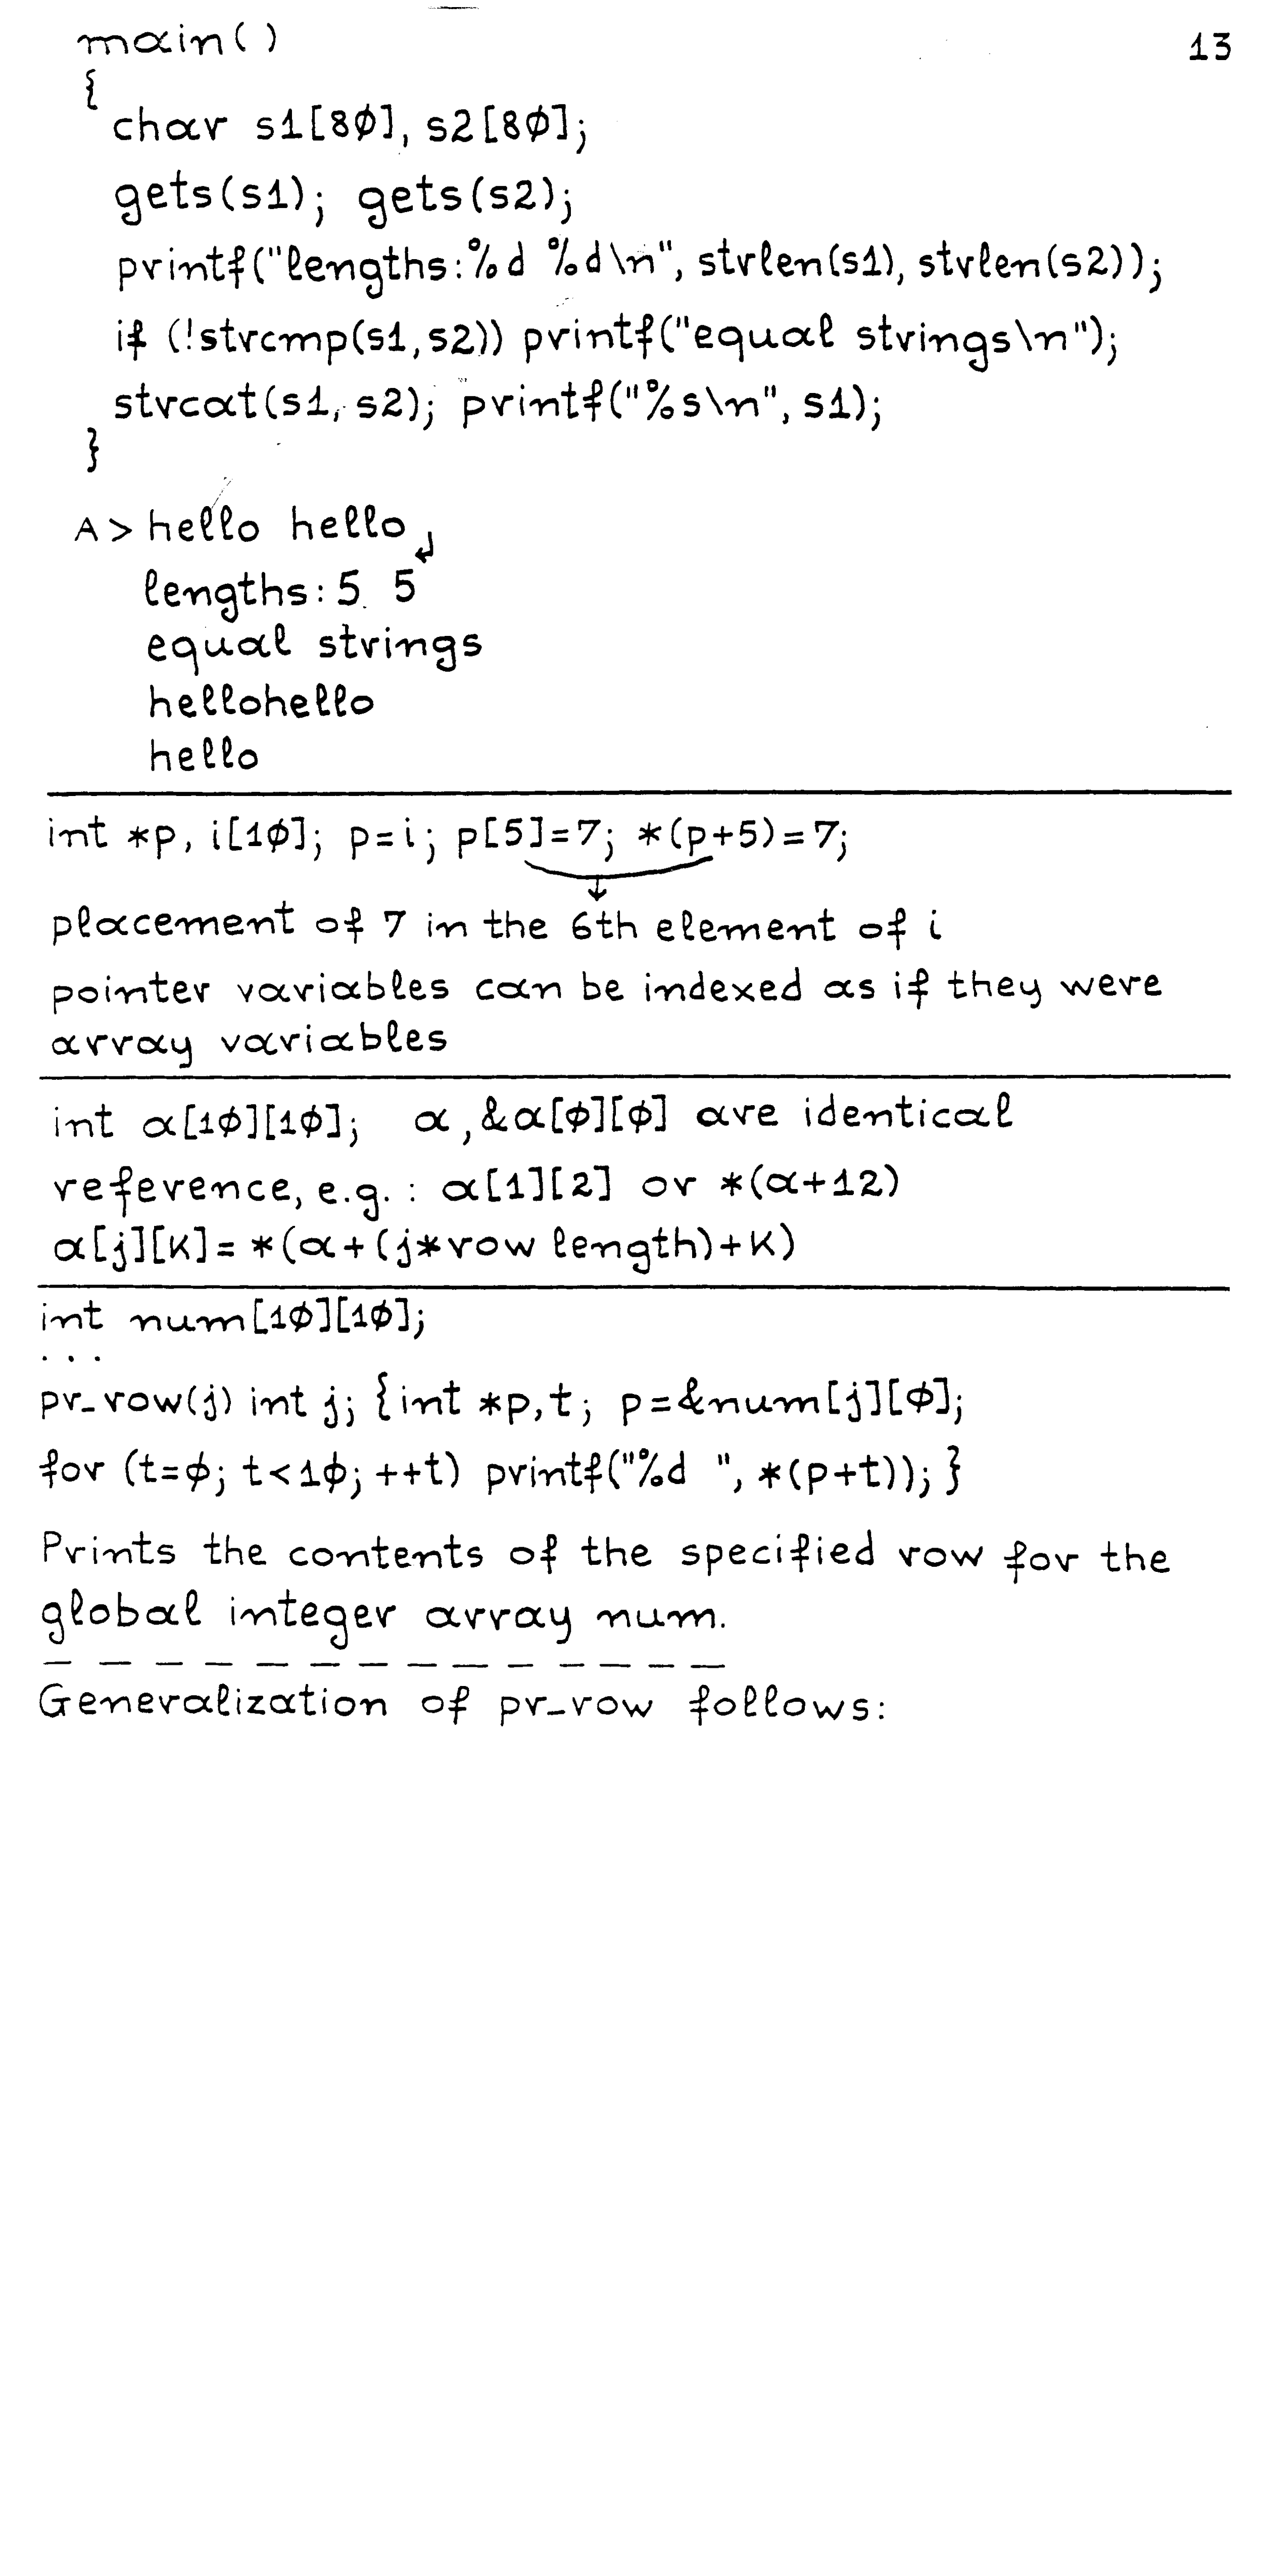 13
main()
{
char s1[80], s2[80];
gets(s1); gets(s2);
printf("lengths:%d %d\n", strlen(s1), strlen(s2));
if (!strcmp(s1,s2)) printf("equal strings\n");
strcat(s1, s2); printf("%s\n", s1);
}
A> hello hello↲
lengths: 5 5
equal strings
hellohello
hello
int *p, i[10]; p=i; p[5]=7; *(p+5)=7;
placement of 7 in the 6th element of i
pointer variables can be indexed as if they were
array variables
int a[10][10]; a, &a[0][0] are identical
reference, e.g.: a[1][2] or *(a+12)
a[j][k]= *(a+(j*row length)+k)
int num[10][10];
...
pr_row(j) int j; {int *p,t; p=&num[j][0];
for (t=0; t<10; ++t) printf("%d ", *(p+t)); }
Prints the contents of the specified row for the
global integer array num.
Generalization of pr_row follows: